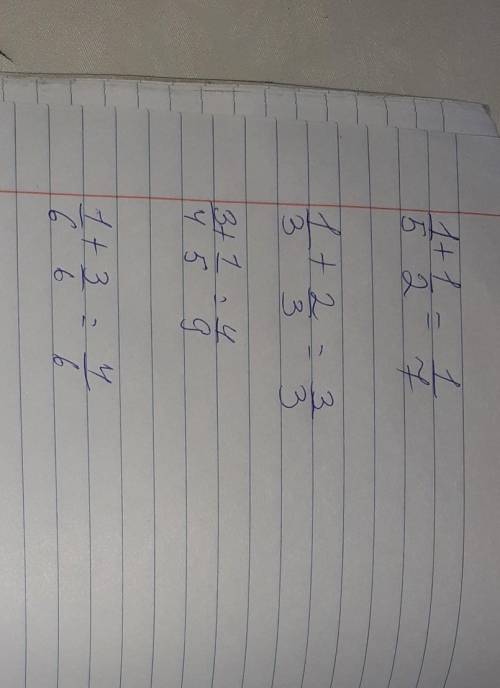 1/5 + 1/2 = 1/7
1/3 + 2/3 = 3/3
3/4 + 1/5 = 4/9
1/6 + 3/6 = 4/6